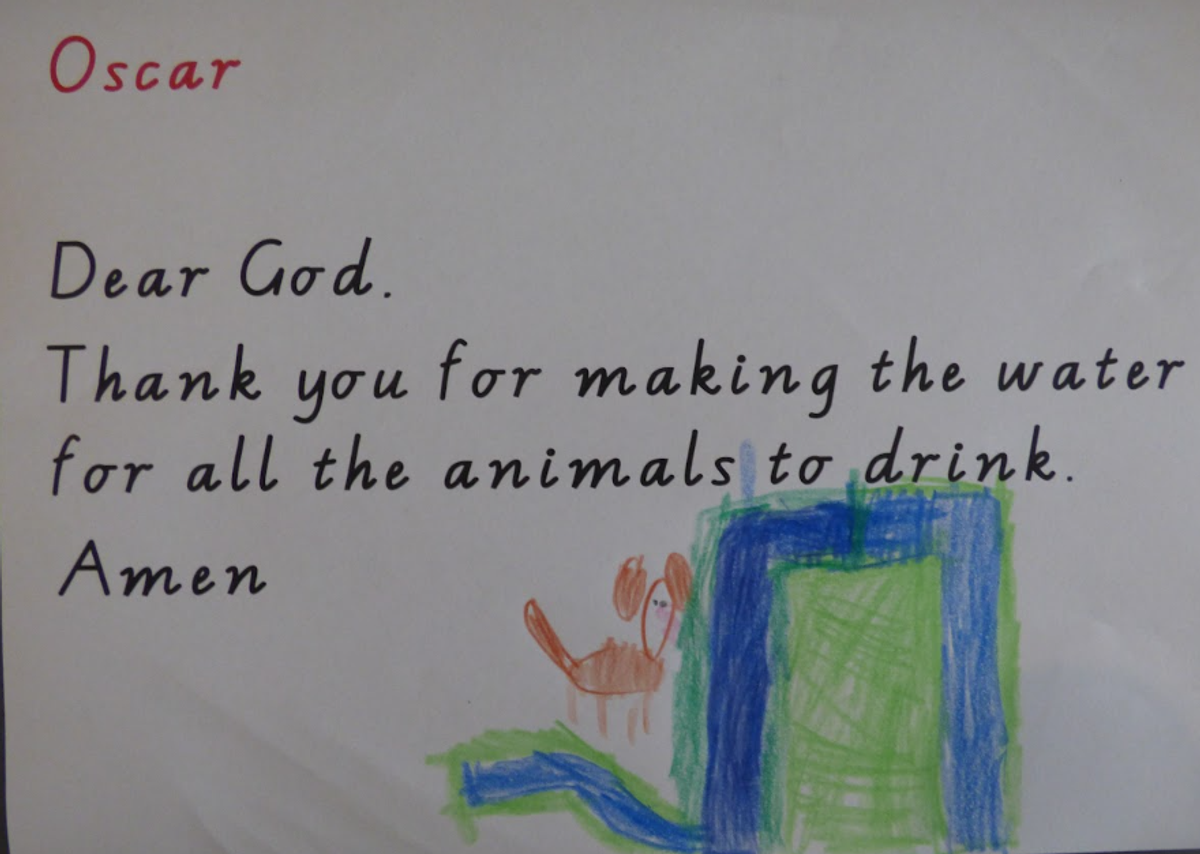 Oscar
Dear God.
Thank you for making the water
for all the animals to drink.
Amen